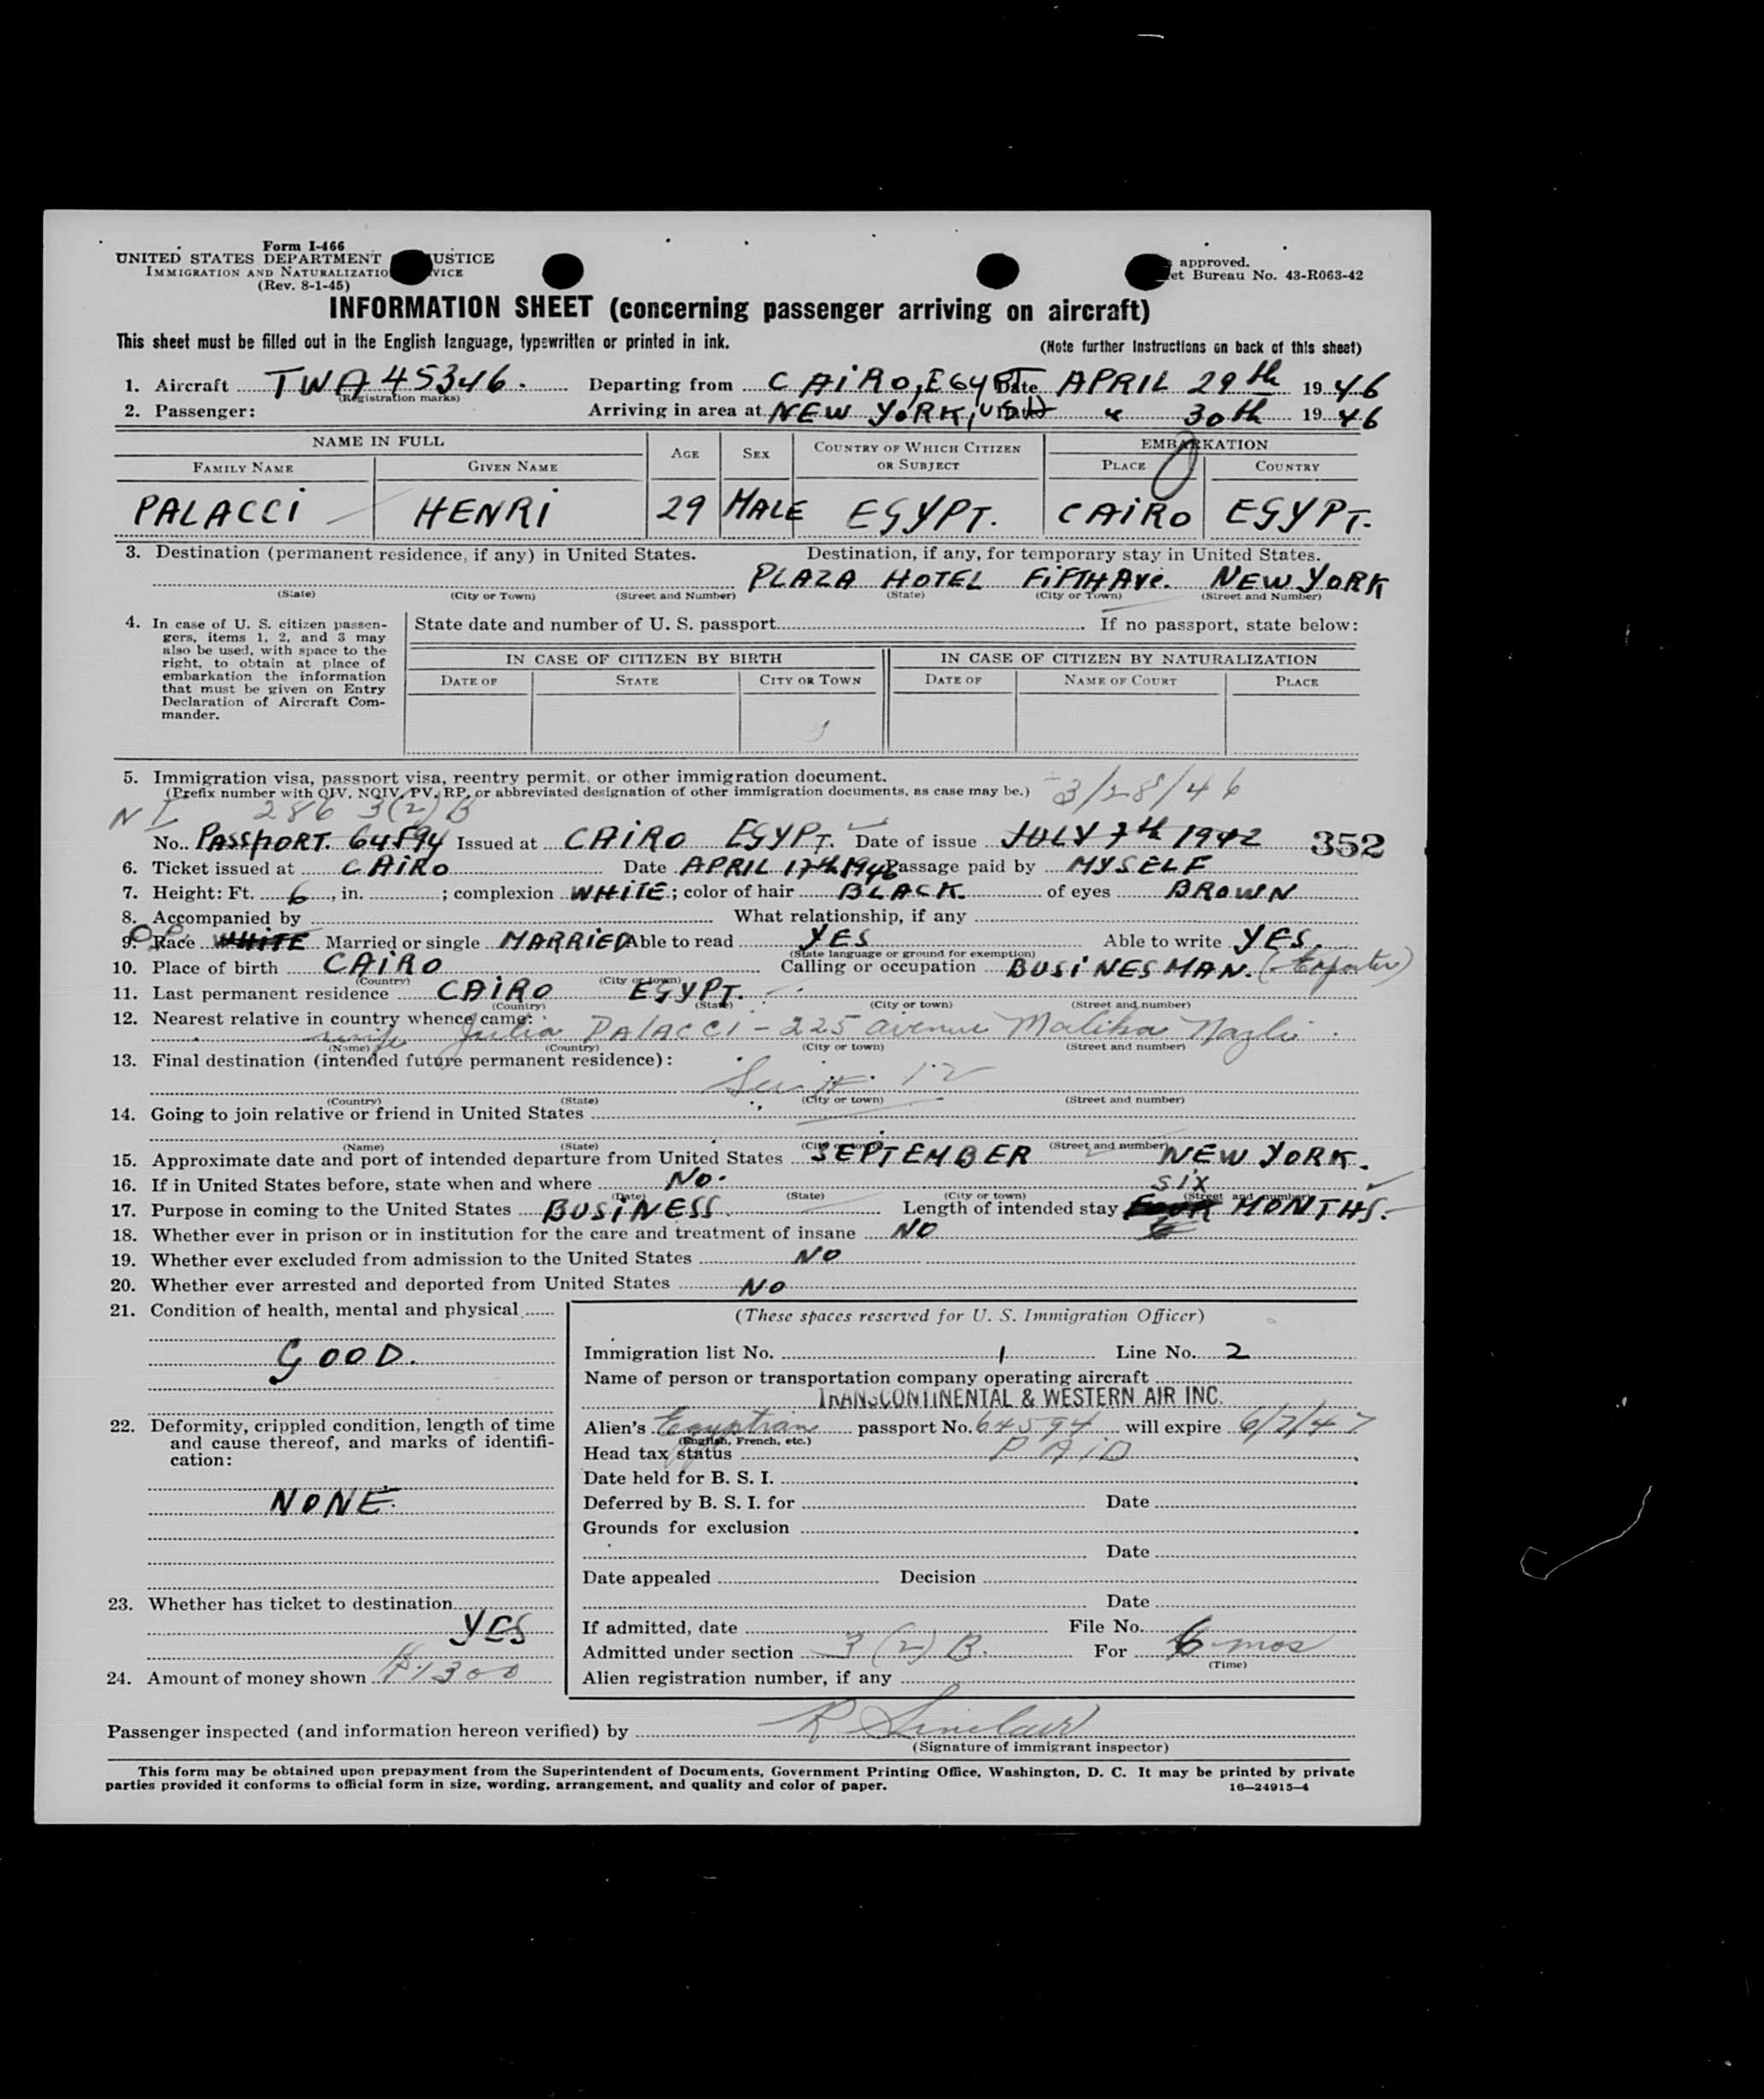 Form I-466
UNITED STATES DEPARTMENT USTICE
IMMIGRATION AND NATURALIZATIO VICE
(Rev. 8-1-45)
approved.
et Bureau No. 43-R063-42
INFORMATION SHEET (concerning passenger arriving on aircraft)
This sheet must be filled out in the English language, typewritten or printed in ink.
(Note further instructions on back of this sheet)
1. Aircraft TWA 45346. Departing from CAiRO, EGYPT Date APRIL 29th 1946
(Registration marks)
2. Passenger: Arriving in area at NEW YORK, " 30th 1946
NAME IN FULL AGE SEX COUNTRY OF WHICH CITIZEN OR SUBJECT EMBARKATION
FAMILY NAME GIVEN NAME PLACE COUNTRY
PALACCi HENRi 29 MALE EGYPT. CAiRO EGYPT.
3. Destination (permanent residence, if any) in United States. Destination, if any, for temporary stay in United States.
PLAZA HOTEL FiFTH AVe. NEW YORK
(State) (City or Town) (Street and Number) (State) (City or Town) (Street and Number)
4. In case of U. S. citizen passengers, items 1, 2, and 3 may also be used, with space to the right, to obtain at place of embarkation the information that must be given on Entry Declaration of Aircraft Commander.
State date and number of U. S. passport If no passport, state below:
IN CASE OF CITIZEN BY BIRTH IN CASE OF CITIZEN BY NATURALIZATION
DATE OF STATE CITY OR TOWN DATE OF NAME OF COURT PLACE
5. Immigration visa, passport visa, reentry permit, or other immigration document.
(Prefix number with QIV, NQIV, PV, RP, or abbreviated designation of other immigration documents, as case may be.) 3/28/46
NI 286 3(2)B
No. PASSPORT. 64594 Issued at CAiRO EGYPT. Date of issue JULY 7th 1942 352
6. Ticket issued at CAiRO Date APRIL 17th 1946 Passage paid by MYSELF
7. Height: Ft. 6, in. ; complexion WHiTE; color of hair BLACK. of eyes BROWN
8. Accompanied by What relationship, if any
9. Race WHiTE Married or single MARRiED Able to read YES Able to write YES.
(State language or ground for exemption)
10. Place of birth CAiRO Calling or occupation BUSiNESMAN. (Exporter)
(Country) (City or town)
11. Last permanent residence CAiRO EGYPT.
(Country) (State) (City or town) (Street and number)
12. Nearest relative in country whence came:
wife Julia PAlACCI - 225 avenue Malika Nazli
(Name) (Country) (City or town) (Street and number)
13. Final destination (intended future permanent residence):
12
(Country) (State) (City or town) (Street and number)
14. Going to join relative or friend in United States
(Name) (State) (City or town) (Street and number)
15. Approximate date and port of intended departure from United States SEPTEMBER NEW YORK.
16. If in United States before, state when and where NO.
(Date) (State) (City or town) (Street and number)
SiX
17. Purpose in coming to the United States BUSiNESS. Length of intended stay FOUR MONTHS.
6
18. Whether ever in prison or in institution for the care and treatment of insane NO
19. Whether ever excluded from admission to the United States NO
20. Whether ever arrested and deported from United States NO
21. Condition of health, mental and physical
GOOD.
22. Deformity, crippled condition, length of time and cause thereof, and marks of identification:
NONE.
23. Whether has ticket to destination
YES
24. Amount of money shown $1300
(These spaces reserved for U. S. Immigration Officer)
Immigration list No. 1 Line No. 2
Name of person or transportation company operating aircraft
TRANSCONTINENTAL & WESTERN AIR INC.
Alien's Egyptian passport No. 64594 will expire 6/7/47
(English, French, etc.)
Head tax status PAiD
Date held for B. S. I.
Deferred by B. S. I. for Date
Grounds for exclusion
Date
Date appealed Decision
Date
If admitted, date File No.
Admitted under section 3(2)B. For 6 mos
(Time)
Alien registration number, if any
Passenger inspected (and information hereon verified) by R Sinclair
(Signature of immigrant inspector)
This form may be obtained upon prepayment from the Superintendent of Documents, Government Printing Office, Washington, D. C. It may be printed by private
parties provided it conforms to official form in size, wording, arrangement, and quality and color of paper.
16—24915-4